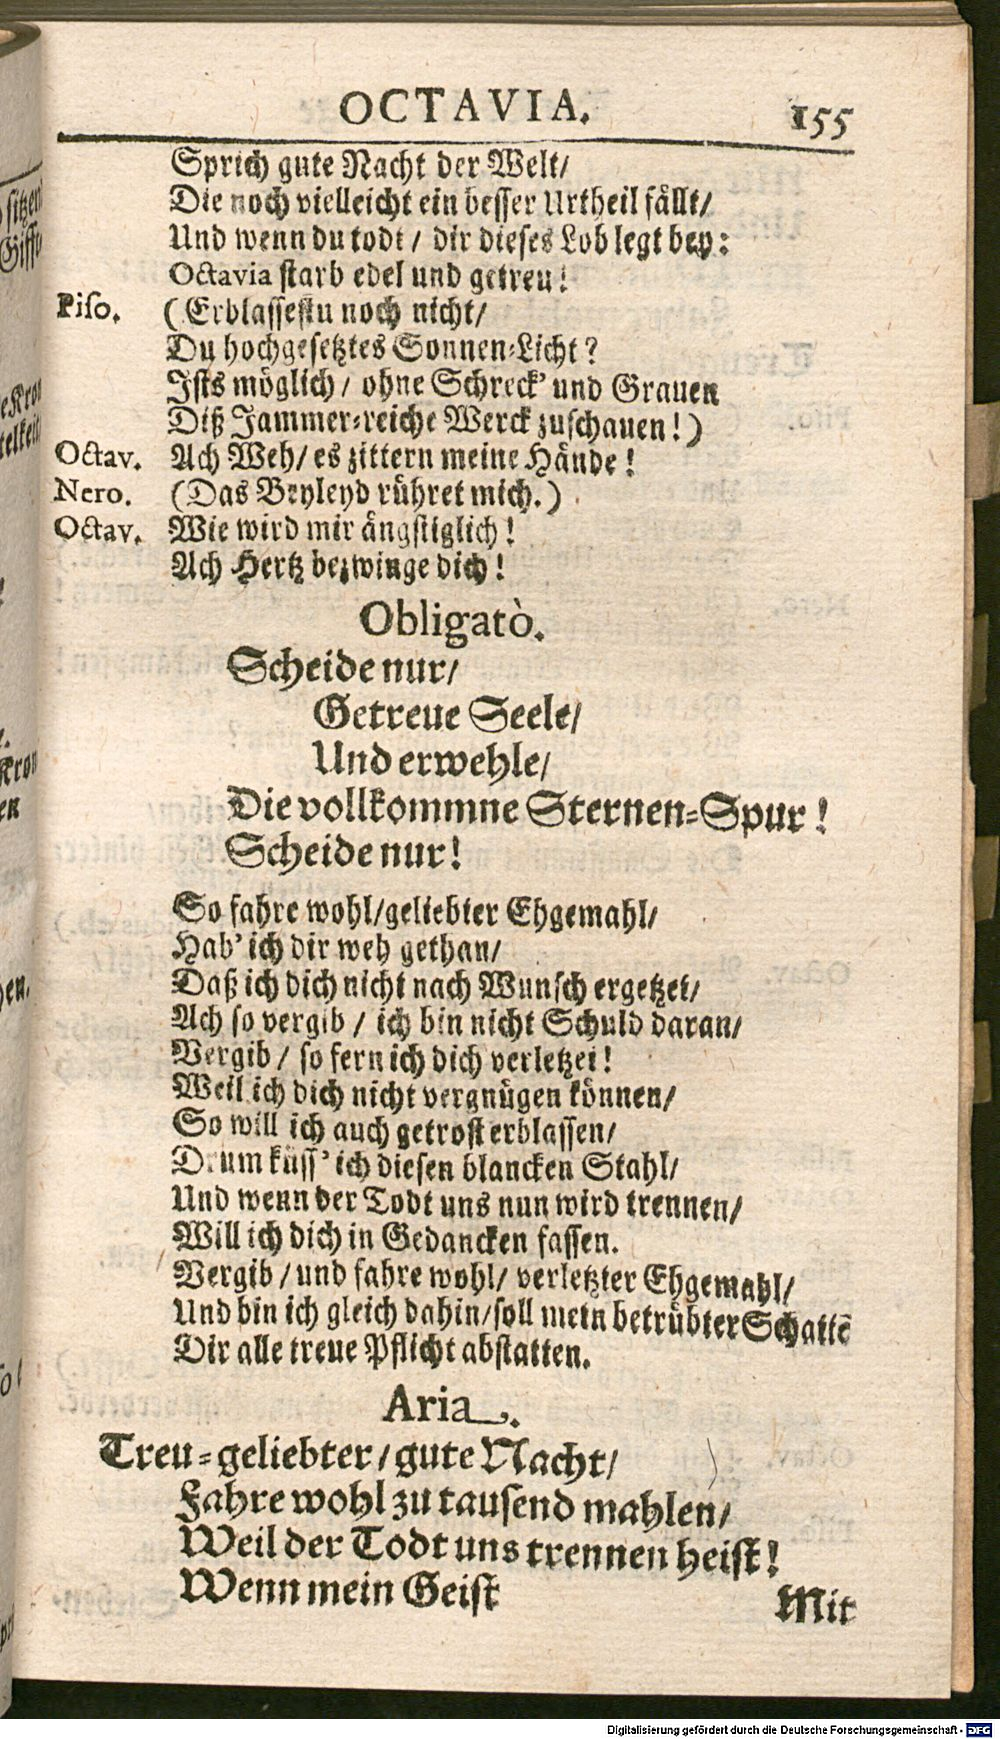 OCTAVIA. 155
Sprich gute Nacht der Welt/
Die noch vielleicht ein besser Urtheil fällt/
Und wenn du todt / dir dieses Lob legt bey:
Octavia starb edel und getreu!
Piso. (Erblassestu noch nicht/
Du hochgesetztes Sonnen-Licht?
Ists möglich/ ohne Schreck' und Grauen
Diß Jammer-reiche Werck zuschauen!)
Octav. Ach Weh/ es zittern meine Hände!
Nero. (Das Beyleyd rühret mich.)
Octav. Wie wird mir ängstiglich!
Ach Hertz bezwinge dich!
Obligatò.
Scheide nur/
Getreue Seele/
Und erwehle/
Die vollkommne Sternen-Spur!
Scheide nur!
So fahre wohl/geliebter Ehgemahl/
Hab' ich dir weh gethan/
Daß ich dich nicht nach Wunsch ergetzet/
Ach so vergib / ich bin nicht Schuld daran/
Vergib / so fern ich dich verletzet!
Weil ich dich nicht vergnügen können/
So will ich auch getrost erblassen/
Drum küss' ich diesen blancken Stahl/
Und wenn der Todt uns nun wird trennen/
Will ich dich in Gedancken fassen.
Vergib / und fahre wohl/ verletzter Ehgemahl/
Und bin ich gleich dahin/soll mein betrübter Schattē
Dir alle treue Pflicht abstatten.
Aria.
Treu-geliebter/gute Nacht/
Fahre wohl zu tausend mahlen/
Weil der Todt uns trennen heist!
Wenn mein Geist
Mit
Digitalisierung gefördert durch die Deutsche Forschungsgemeinschaft - DFG